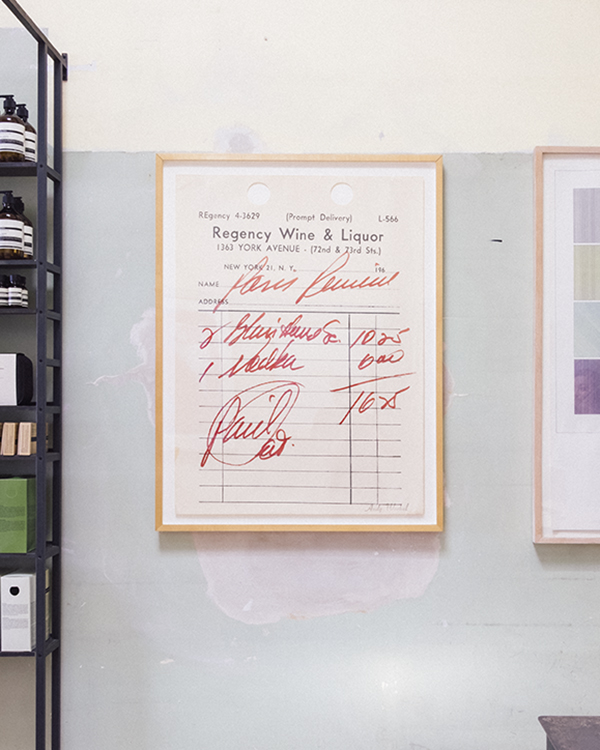 REgency 4-3629 (Prompt Delivery) L-566
Regency Wine & Liquor
1363 YORK AVENUE - (72nd & 73rd Sts.)
NEW YORK 21, N. Y. 196
NAME Paris Review
ADDRESS
2 1025
1 Vodka 600
1625
Paid